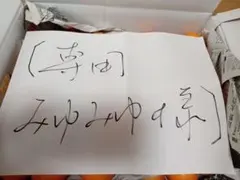 [専用]
みゆみゆ様]